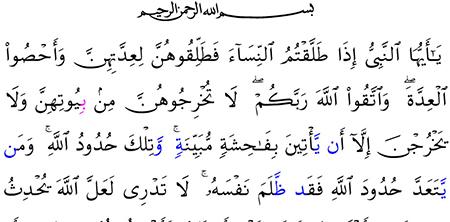 بسم الله الرحمن الرحيم
يَـٰٓأَيُّهَا ٱلنَّبِىُّ إِذَا طَلَّقْتُمُ ٱلنِّسَآءَ فَطَلِّقُوهُنَّ لِعِدَّتِهِنَّ وَأَحْصُوا۟
ٱلْعِدَّةَ ۖ وَٱتَّقُوا۟ ٱللَّهَ رَبَّكُمْ ۖ لَا تُخْرِجُوهُنَّ مِنۢ بُيُوتِهِنَّ وَلَا
يَخْرُجْنَ إِلَّآ أَن يَأْتِينَ بِفَـٰحِشَةٍ مُّبَيِّنَةٍ ۚ وَتِلْكَ حُدُودُ ٱللَّهِ ۚ وَمَن
يَتَعَدَّ حُدُودَ ٱللَّهِ فَقَدْ ظَلَمَ نَفْسَهُۥ ۚ لَا تَدْرِى لَعَلَّ ٱللَّهَ يُحْدِثُ